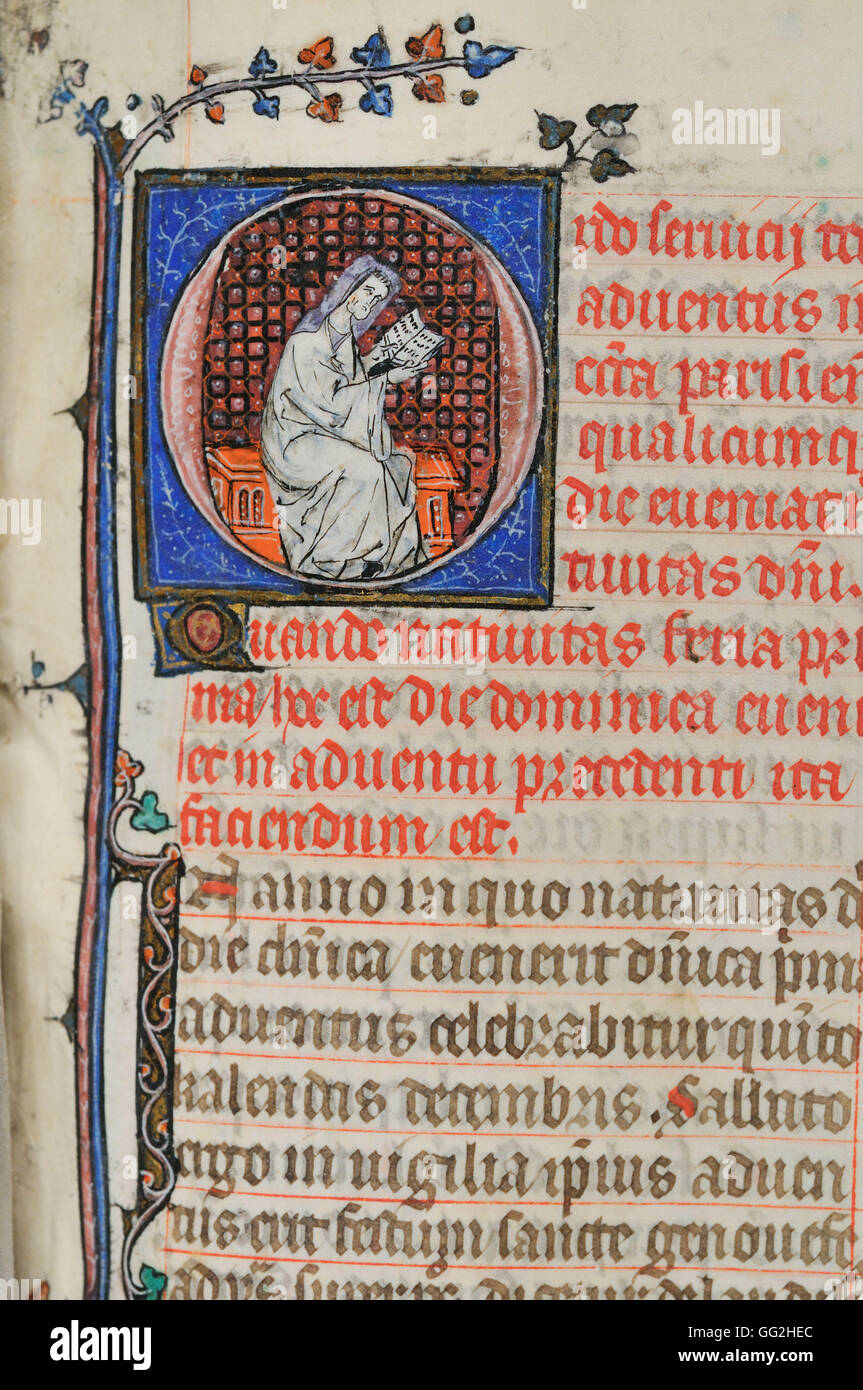 Ordo servicij to
adventus
ecc̄a parisien
qualicumq
die eveniat
tivitas dn̄i.
Quando nativitas feria pri
ma hoc est die dominica even
et in adventu precedenti ita
faciendum est.
anno in quo nativitas d
die dn̄ica evenerit dn̄ica pm
adventus celebrabitur qui̅to
kalendas decembris. Sabb̄to
ergo in vigilia ip̄ius adven
tus erit festum sancte genovefe
alamy
alamy
Image ID: GG2HEC
www.alamy.com